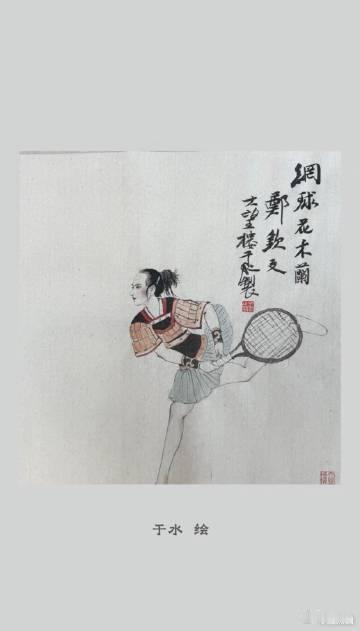 網球花木蘭
鄭欽文
大望樓于水製
于水 绘